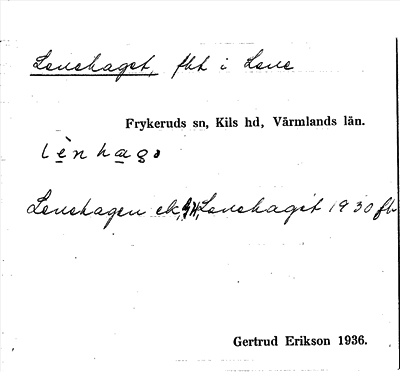 Lenehaget, fht i Lene
Frykeruds sn, Kils hd, Värmlands län.
lènhago
Lenehagen ek, Lenehaget 1930 fb
Gertrud Erikson 1936.